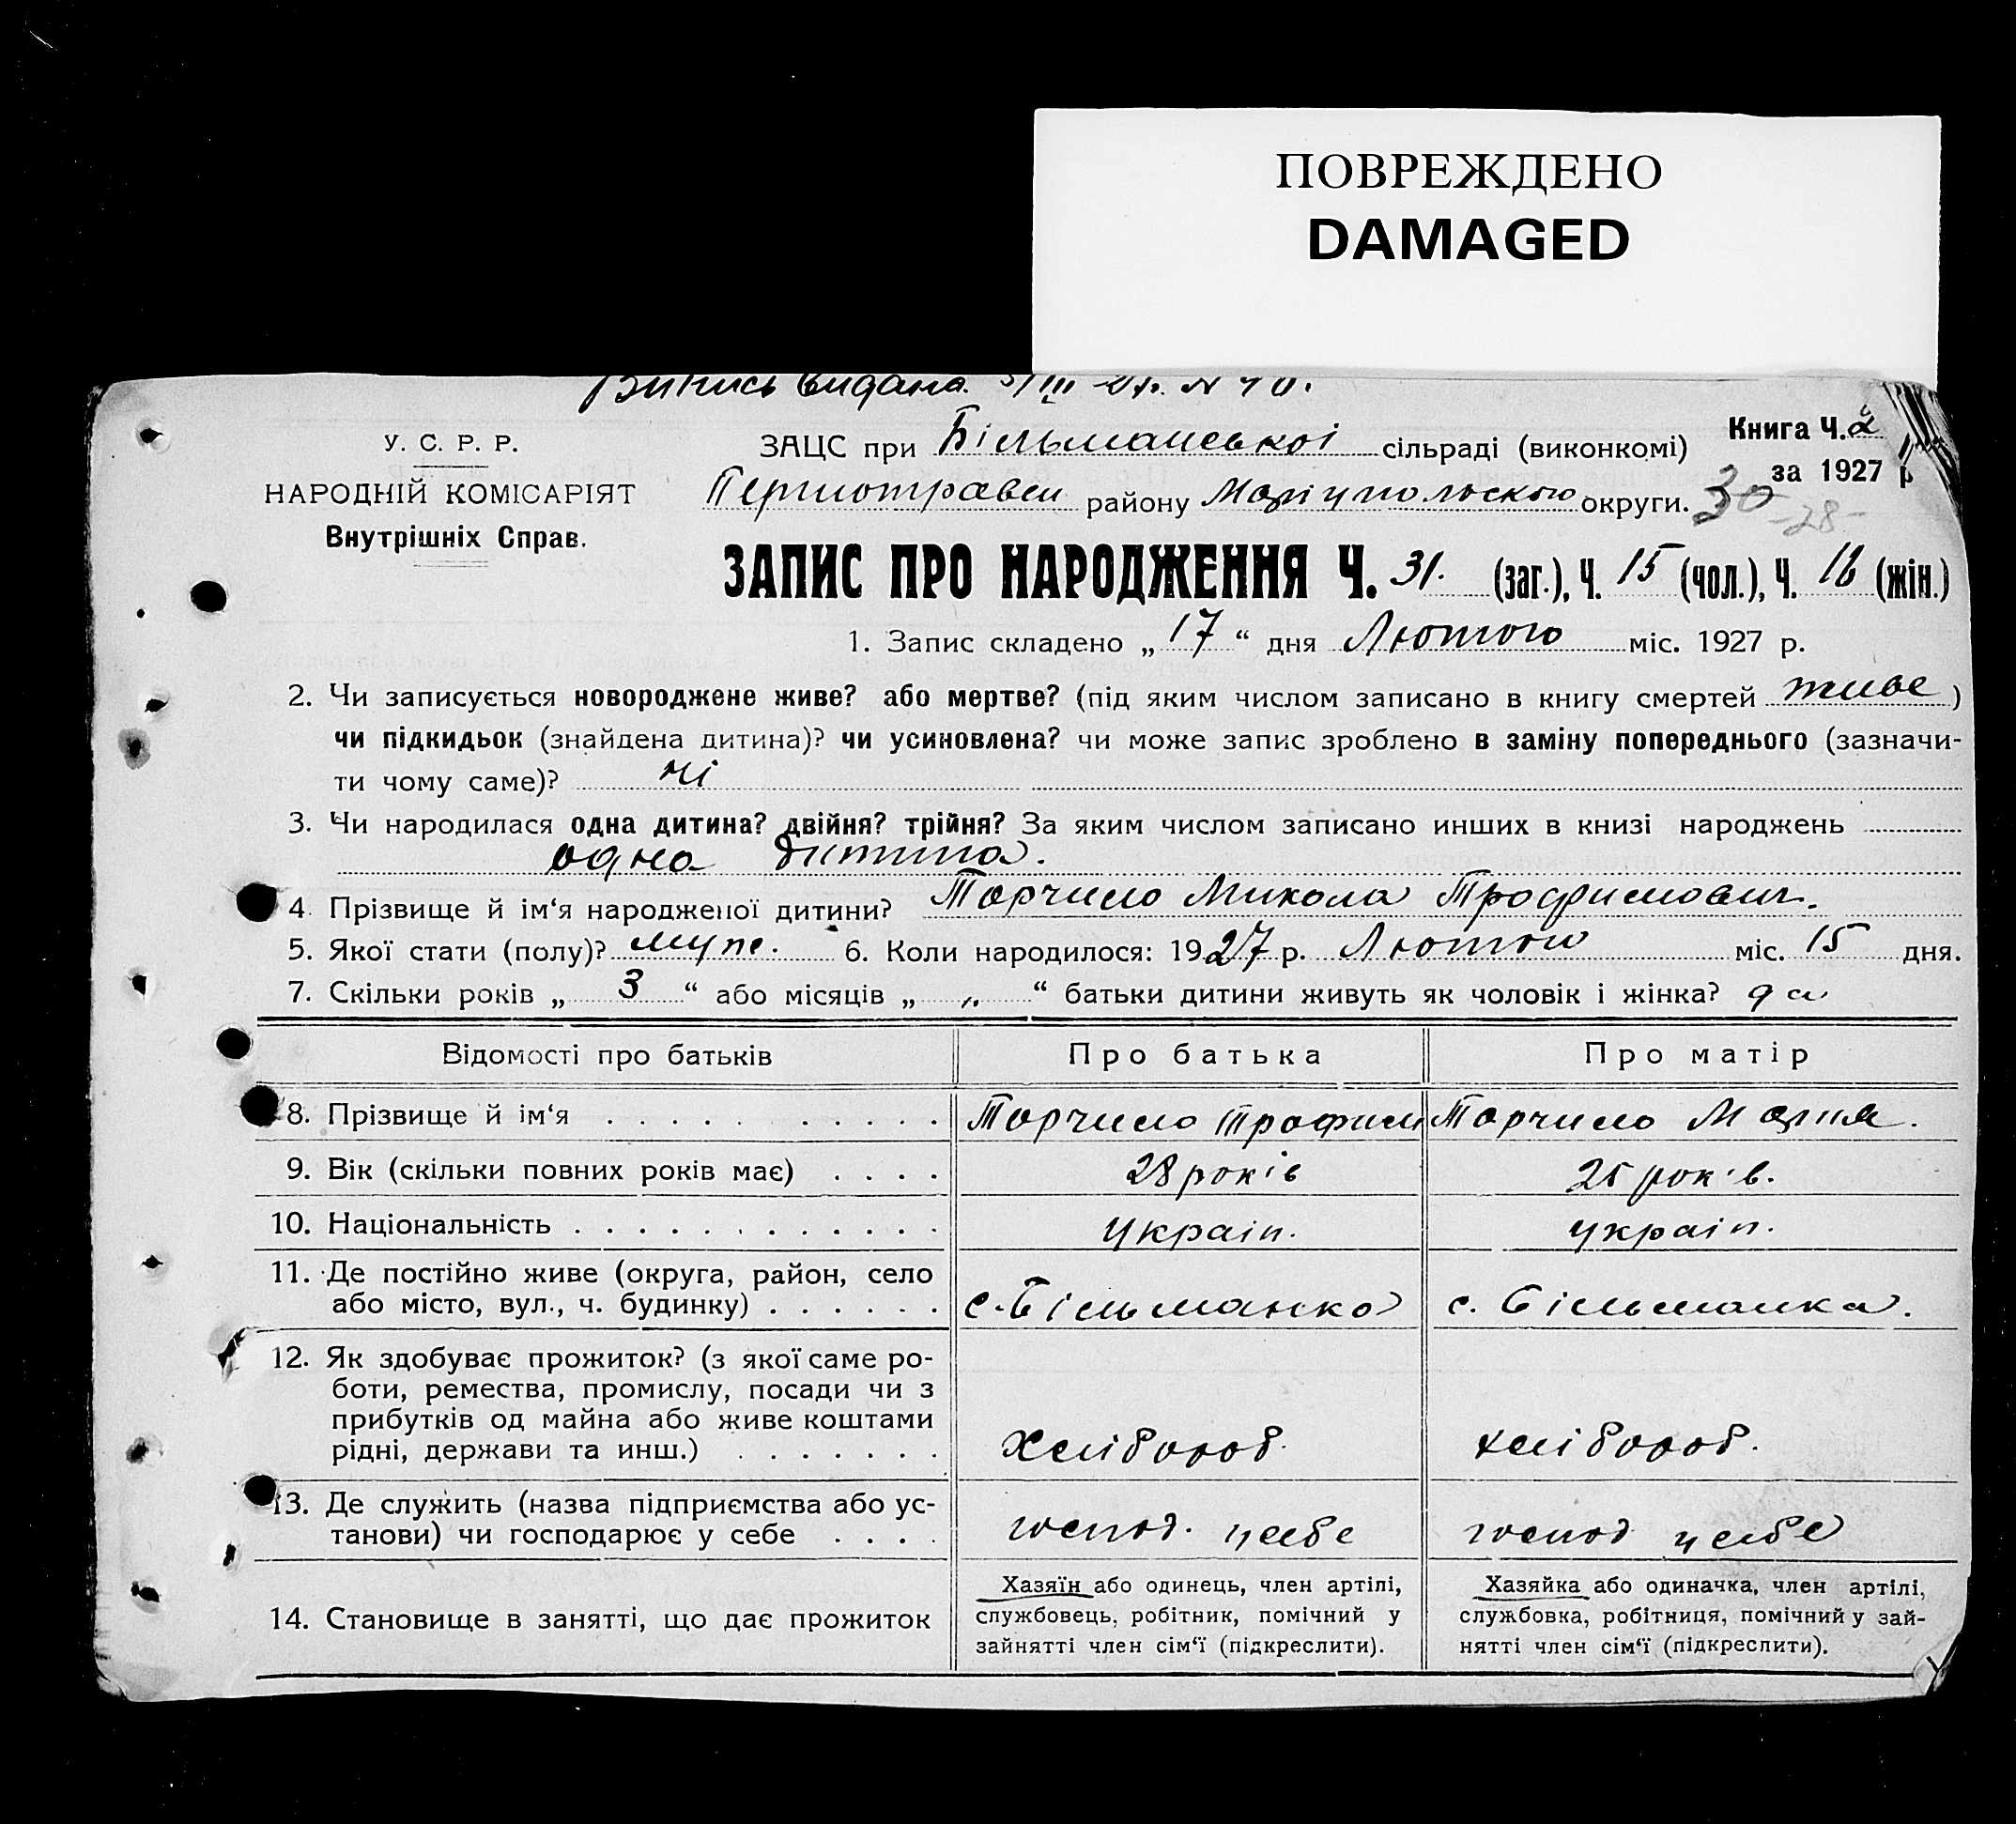 ПОВРЕЖДЕНО
DAMAGED
Випись видана.
У. С. Р. Р.
НАРОДНІЙ КОМІСАРІЯТ
Внутрішніх Справ.
ЗАЦС при Більманської сільраді (виконкомі)
Книга Ч. 2
за 1927 р
Першотравен району Маріупольского округи. 30 -28-
ЗАПИС ПРО НАРОДЖЕННЯ Ч. 31. (заг.), Ч. 15 (чол.), Ч. 16 (жін.)
1. Запис складено „ 17 “ дня Лютого міс. 1927 р.
2. Чи записується новороджене живе? або мертве? (під яким числом записано в книгу смертей живе )
чи підкидьок (знайдена дитина)? чи усиновлена? чи може запис зроблено в заміну попереднього (зазначи-
ти чому саме)? ні
3. Чи народилася одна дитина? двійня? трійня? За яким числом записано инших в книзі народжень
одна дитина.
4. Прізвище й ім‘я народженої дитини? Торчило Микола Трофимович.
5. Якої стати (полу)? муж. 6. Коли народилося: 1927 р. Лютого міс. 15 дня.
7. Скільки років „ 3 “ або місяців „ „ “ батьки дитини живуть як чоловік і жінка? да
Відомості про батьків Про батька Про матір
8. Прізвище й ім‘я Торчило Трофим Торчило Мария.
9. Вік (скільки повних років має) 28 років 25 років.
10. Національність україн. україн.
11. Де постійно живе (округа, район, село
або місто, вул., ч. будинку) с. Більманка с. Більманка.
12. Як здобуває прожиток? (з якої саме ро-
боти, ремества, промислу, посади чи з
прибутків од майна або живе коштами
рідні, держави та инш.) Хлібороб. хлібороб.
13. Де служить (назва підприємства або ус-
танови) чи господарює у себе господ. у себе господ у себе
14. Становище в занятті, що дає прожиток
Хазяїн або одинець, член артілі,
службовець, робітник, помічний у
зайнятті член сім‘ї (підкреслити).
Хазяйка або одиначка, член артілі,
службовка, робітниця, помічний у зай-
нятті член сім‘ї (підкреслити).